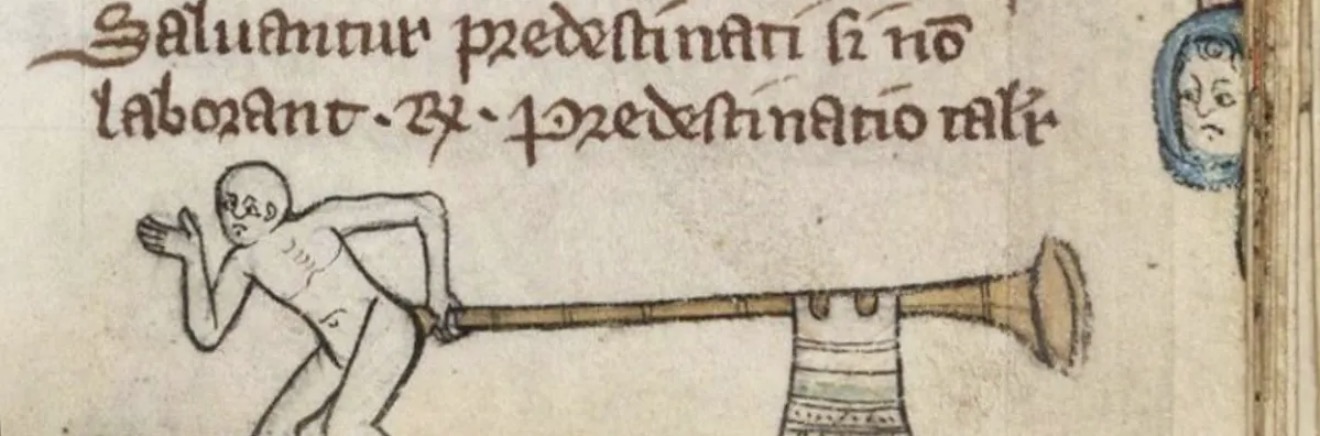 Saluantur predestinati si nō
laborant · R̛x · Predestinatio tal̛r